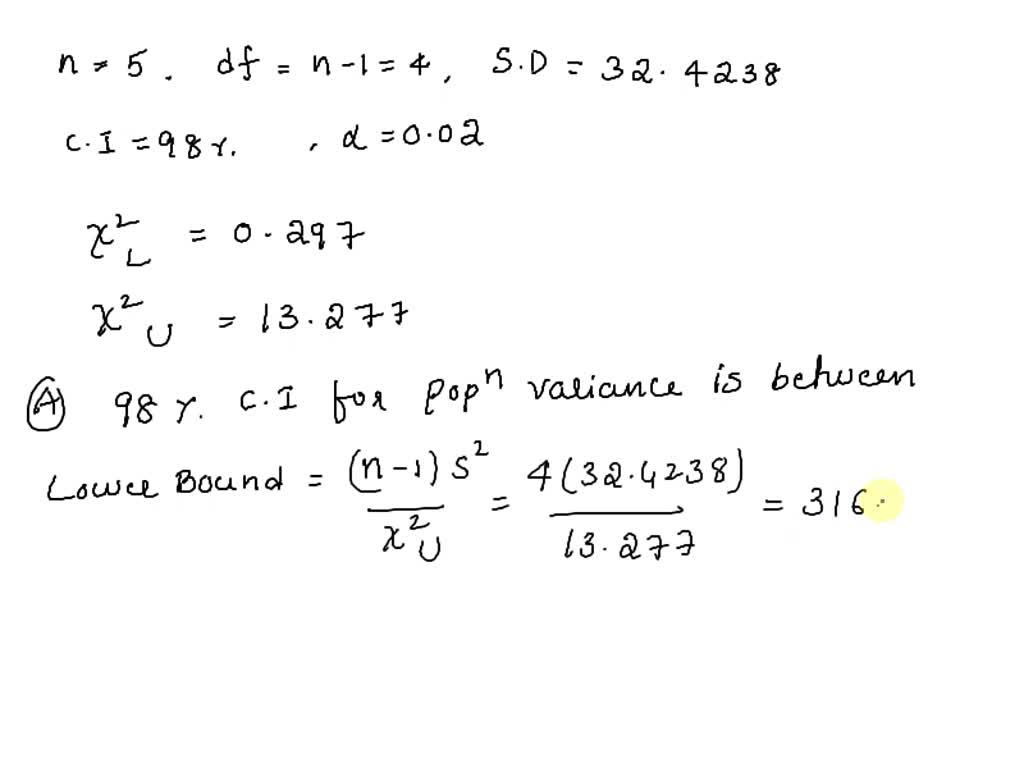 n = 5 . df = n - 1 = 4 , S.D = 32.4238
C.I = 98 %. , α = 0.02
χ²L = 0.297
χ²U = 13.277
(A) 98 %. C.I for popⁿ variance is between
Lower Bound = (n - 1) S² / χ²U = 4(32.4238) / 13.277 = 316.